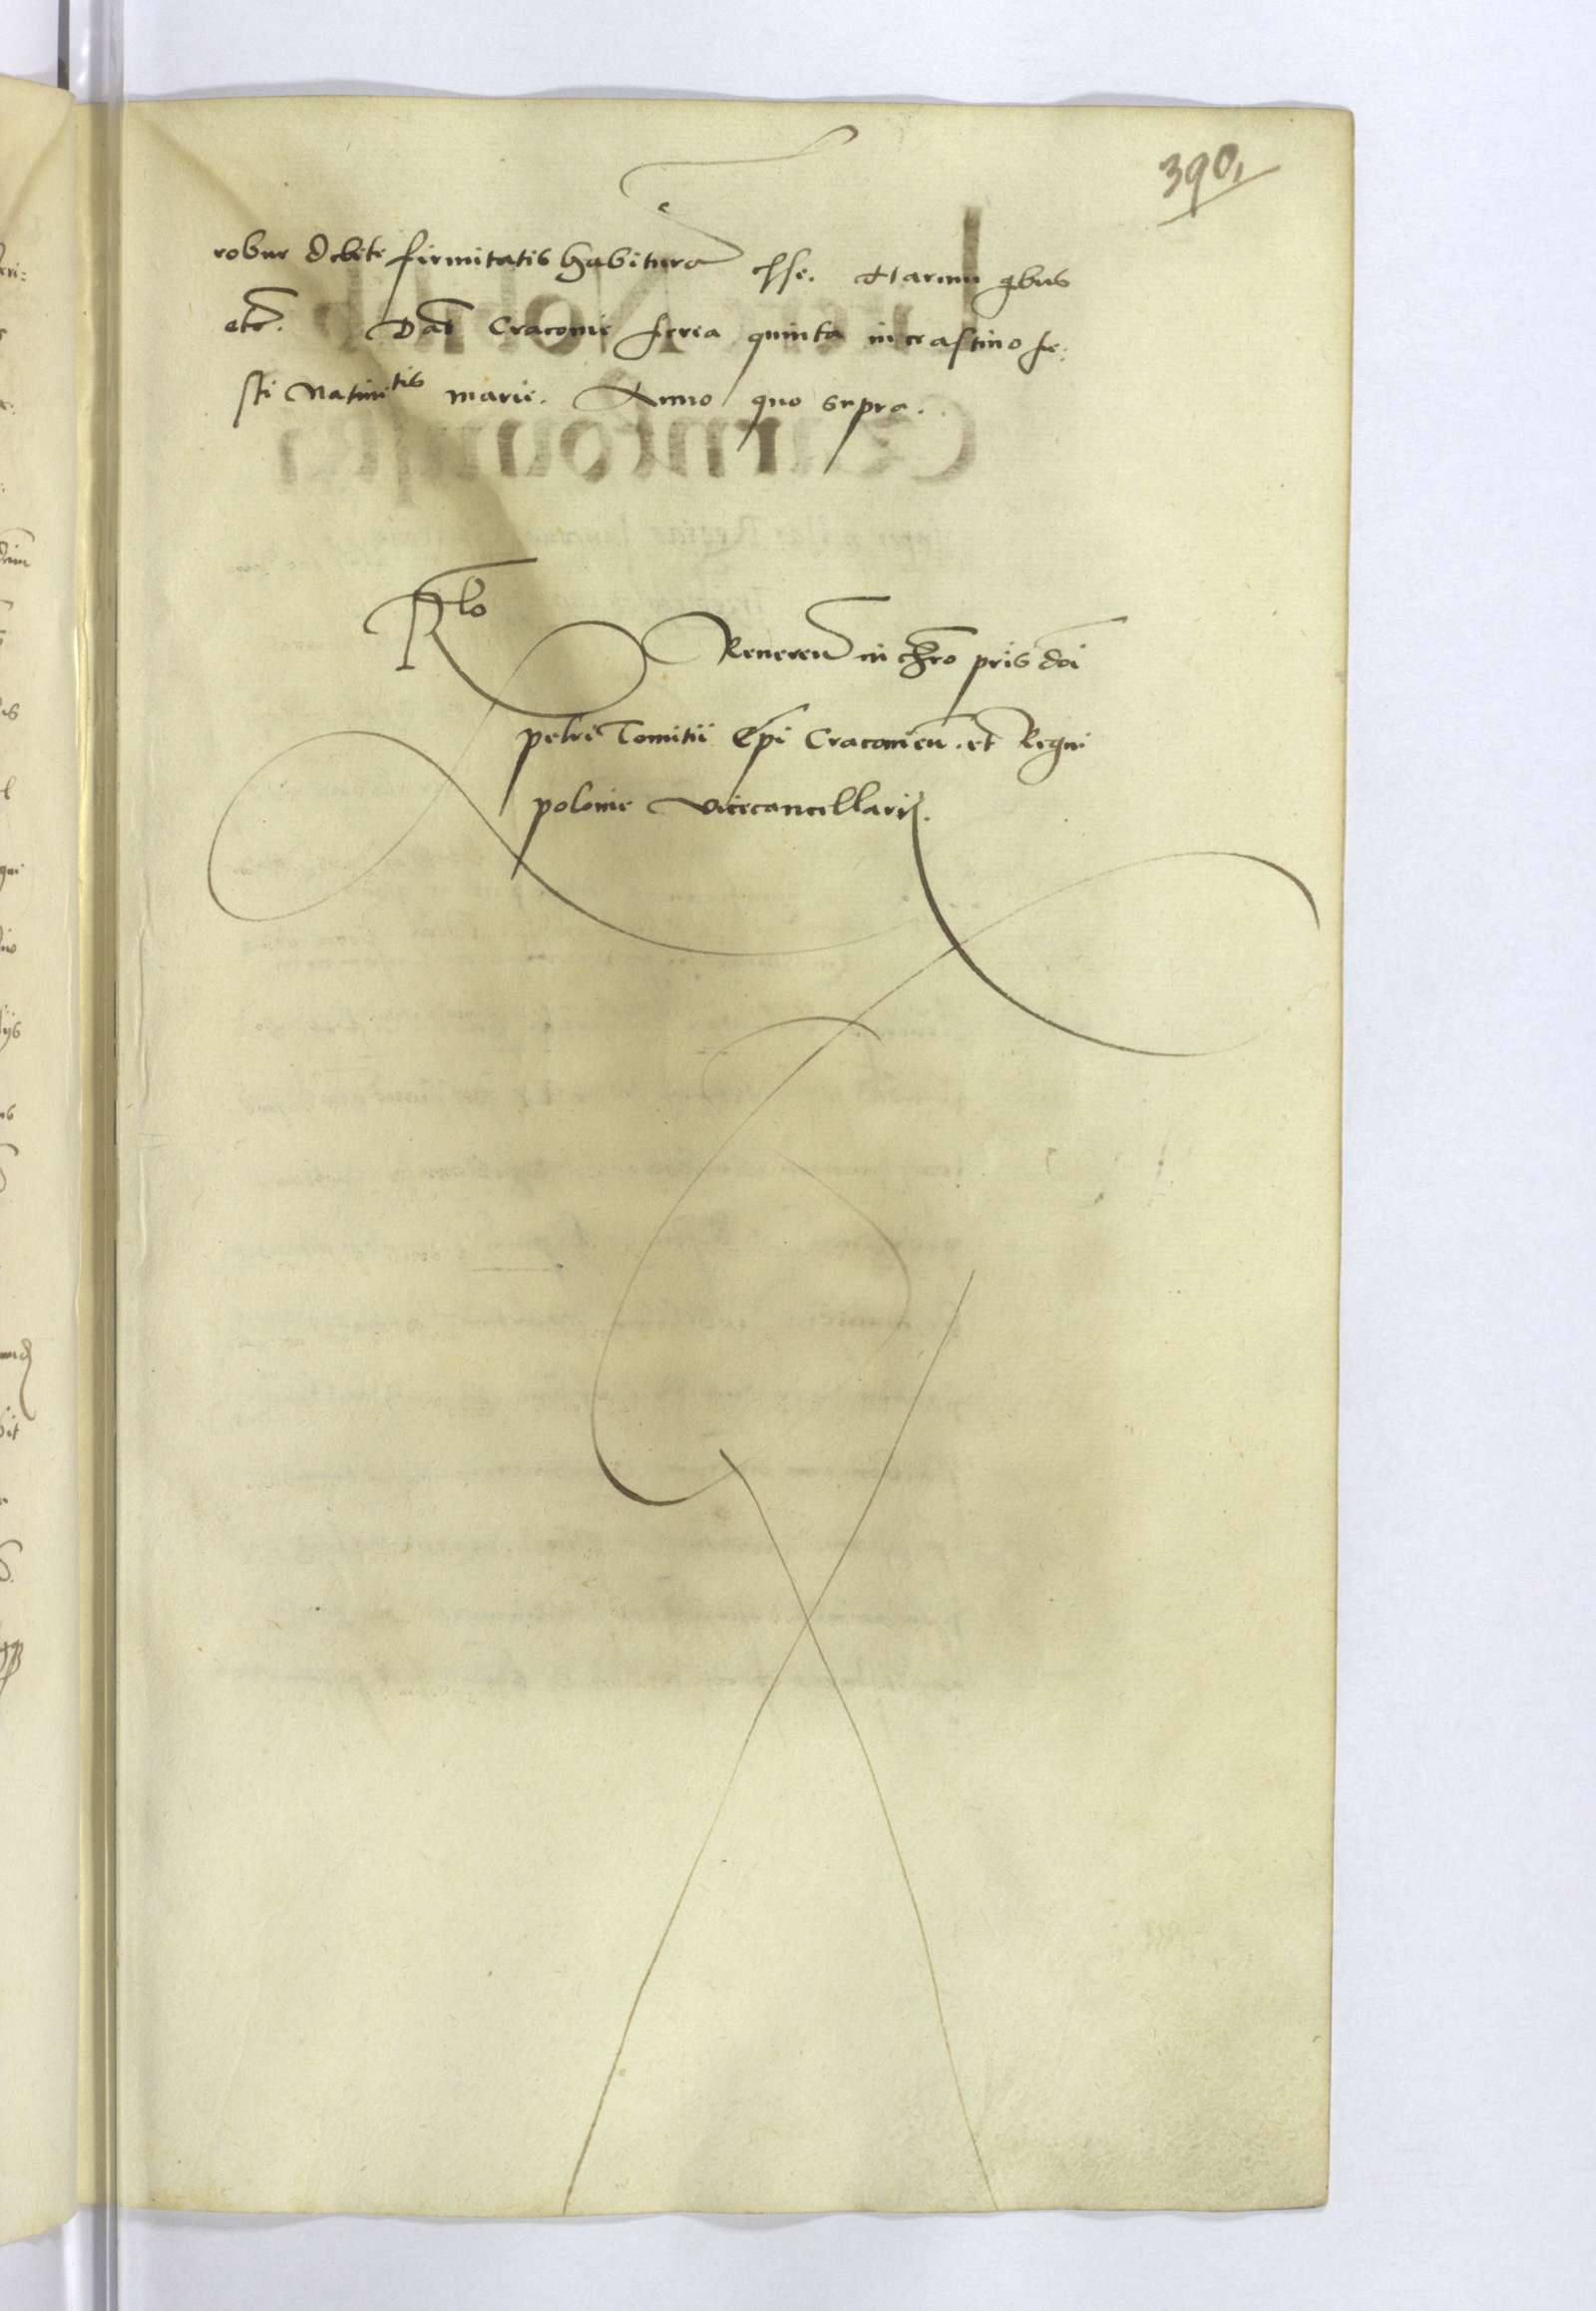 390,
robur debite firmitatis habitura esse. Harum qbus
etc. Dat Cracovie feria quinta in crastino fe:
sti Nativitis marie. Anno quo supra.
Rlo
Reveren in chro pris doi
petri Tomitii Epi Cracovien. et Regni
polonie vicecancellarij.